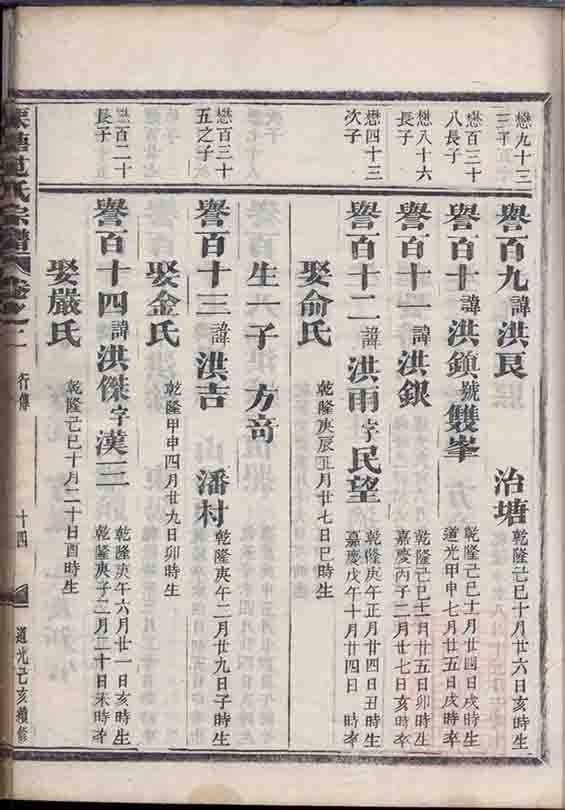 懋九十三
三子
譽百九諱洪艮 治塘 乾隆己巳十月廿六日亥時生
懋百三十
八長子
譽百十諱洪鎮號雙峯 乾隆己巳十月廿四日戌時生
道光甲申七月廿五日戌時卒
懋八十六
長子
譽百十一諱洪銀 乾隆己巳十二月廿五日卯時生
嘉慶丙子二月廿七日亥時卒
懋四十三
次子
譽百十二諱洪雨字民望 乾隆庚午正月廿四日丑時生
嘉慶戊午十月廿四日 時卒
娶俞氏 乾隆庚辰正月廿七日巳時生
生一子 方奇
懋百三十
五之子
譽百十三諱洪吉 潘村 乾隆庚午二月廿九日子時生
娶金氏 乾隆甲申四月廿九日卯時生
懋百二十
長子
譽百十四諱洪傑字漢三 乾隆庚午六月廿一日亥時生
乾隆庚子二月二十日未時卒
娶嚴氏 乾隆己巳十月二十日酉時生
氏宗譜
行傳 十四 道光己亥續修